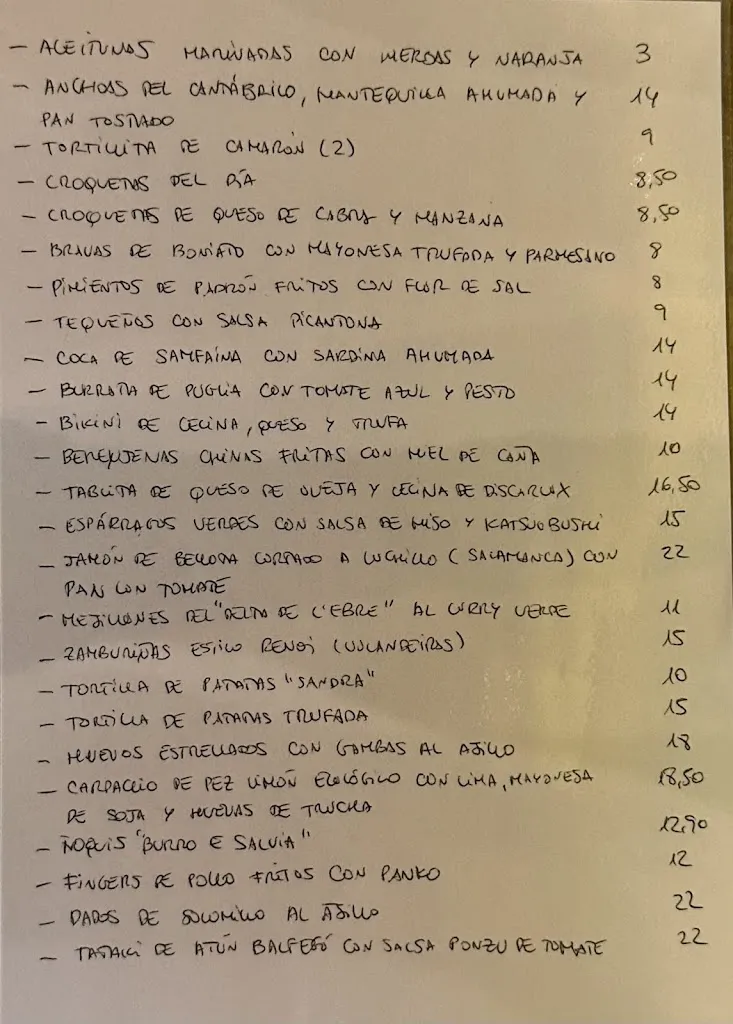 - ACEITUNAS MARINADAS CON HIERBAS Y NARANJA 3
- ANCHOAS DEL CANTÁBRICO, MANTEQUILLA AHUMADA Y 14
PAN TOSTADO
- TORTILLITA DE CAMARÓN (2) 9
- CROQUETAS DEL DÍA 8,50
- CROQUETAS DE QUESO DE CABRA Y MANZANA 8,50
- BRAVAS DE BONIATO CON MAYONESA TRUFADA Y PARMESANO 8
- PIMIENTOS DE PADRÓN FRITOS CON FLOR DE SAL 8
- TEQUEÑOS CON SALSA PICANTONA 9
- COCA DE SAMFAINA CON SARDINA AHUMADA 14
- BURRATA DE PUGLIA CON TOMATE AZUL Y PESTO 14
- BIKINI DE CECINA, QUESO Y TRUFA 14
- BERENJENAS CHINAS FRITAS CON MIEL DE CAÑA 10
- TABLITA DE QUESO DE OVEJA Y CECINA DE DISCARLUX 16,50
- ESPÁRRAGOS VERDES CON SALSA DE MISO Y KATSUOBUSHI 15
- JAMÓN DE BELLOTA CORTADO A CUCHILLO (SALAMANCA) CON 22
PAN CON TOMATE
- MEJILLONES DEL "DELTA DE L'EBRE" AL CURRY VERDE 11
- ZAMBURIÑAS ESTILO (VOLANDEIRAS) 15
- TORTILLA DE PATATAS "SANDRA" 10
- TORTILLA DE PATATAS TRUFADA 15
- HUEVOS ESTRELLADOS CON GAMBAS AL AJILLO 18
- CARPACCIO DE PEZ LIMÓN ECOLÓGICO CON LIMA, MAYONESA 18,50
DE SOJA Y HUEVAS DE TRUCHA
- ÑOQUIS "BURRO E SALVIA" 12,90
- FINGERS DE POLLO FRITOS CON PANKO 12
- DADOS DE SOLOMILLO AL AJILLO 22
- TATAKI DE ATÚN BALFEGÓ CON SALSA PONZU DE TOMATE 22